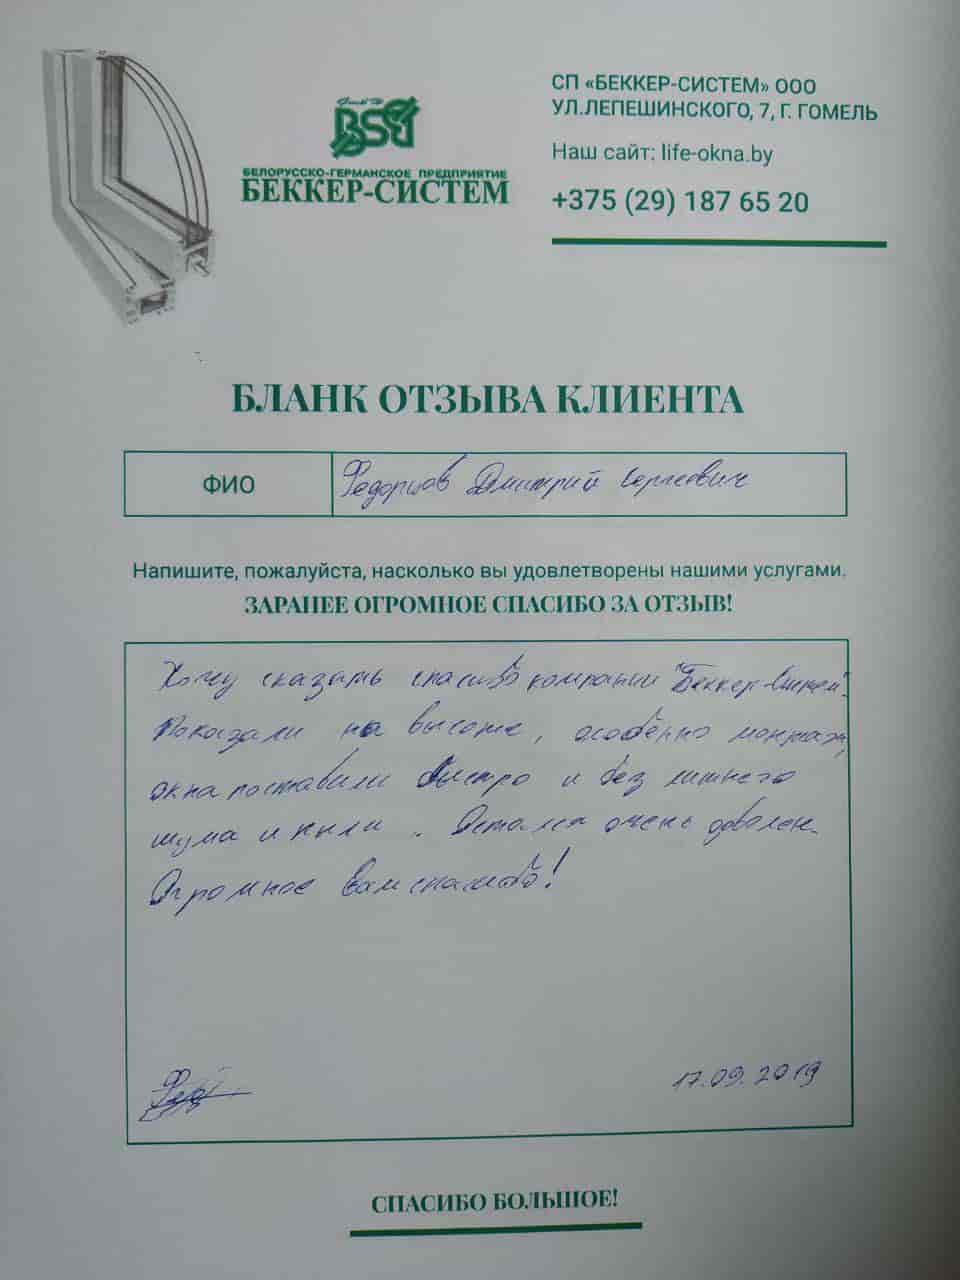 BSG
БЕЛОРУССКО-ГЕРМАНСКОЕ ПРЕДПРИЯТИЕ
БЕККЕР-СИСТЕМ
СП «БЕККЕР-СИСТЕМ» ООО
УЛ.ЛЕПЕШИНСКОГО, 7, Г. ГОМЕЛЬ
Наш сайт: life-okna.by
+375 (29) 187 65 20
БЛАНК ОТЗЫВА КЛИЕНТА
ФИО
Федорцов Дмитрий Сергеевич
Напишите, пожалуйста, насколько вы удовлетворены нашими услугами.
ЗАРАНЕЕ ОГРОМНОЕ СПАСИБО ЗА ОТЗЫВ!
Хочу сказать спасибо компании "Беккер-Систем".
Показали на высоте, особенно монтаж,
окна поставили быстро и без лишнего
шума и пыли. Остался очень доволен.
Огромное Вам спасибо!
17.09.2019
СПАСИБО БОЛЬШОЕ!